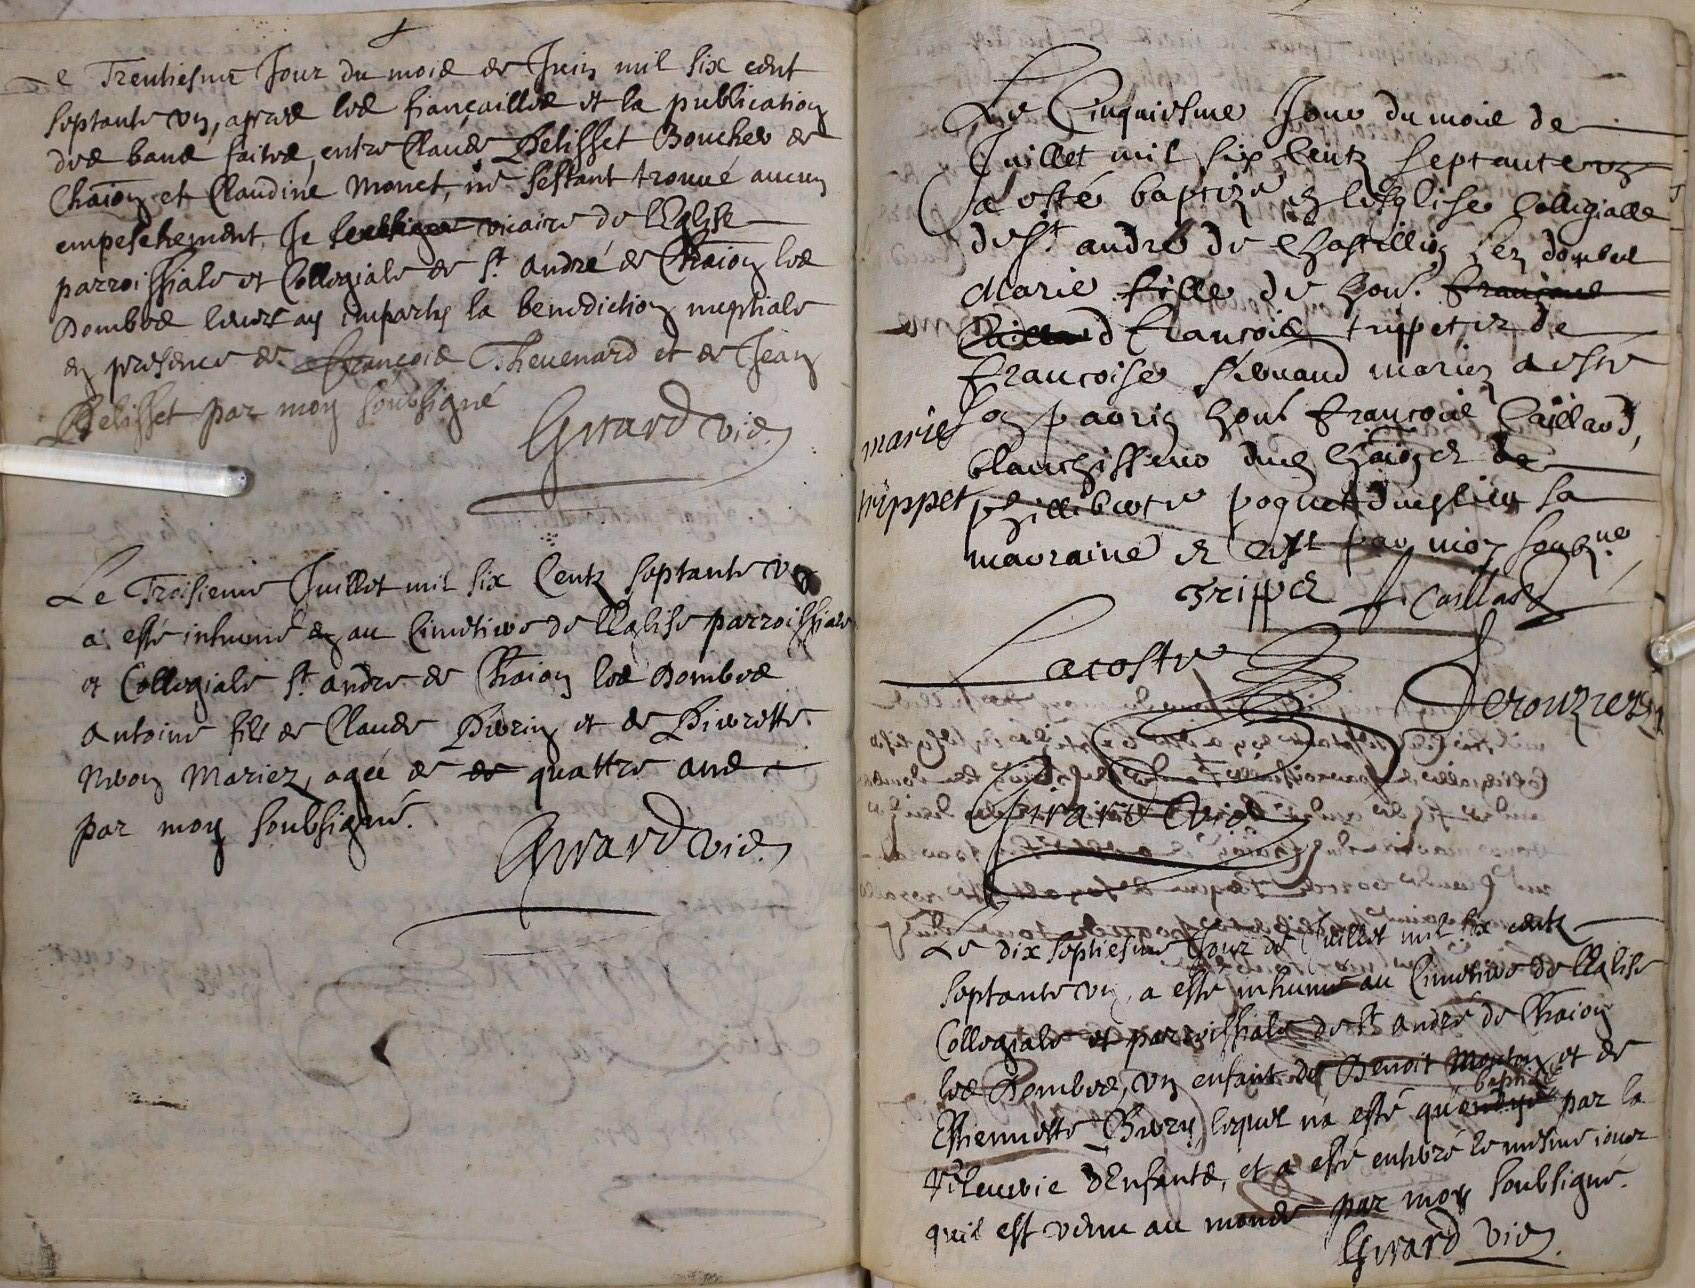 Le Trentiesme Jour du mois de Juin mil six cent
septante un, apres les fiançailles et la publication
des bans faites, entre Claude Pelisset Boucher de
Chaōn et Claudine Monet, ne sestant trouvé aucun
empeschement, Je vicaire de lEglise
parroissiale et Collegiale de St. andré de Chaōn les
Dombes leurs ay imparty la benediction nuptiale
en presence de françois Thevenard et de Jean
Pelisset par moy soubsigné
Girard vic.
Le Troisieme Juillet mil six Centz septante un
a esté inhumé au Cimetiere de lEglise parroissiale
et Collegiale St. andre de Chaōn les Dombes
Antoine fils de Claude et de Pierrette
Mariez, agée de de quattre ans
par moy soubsigné.
Girard vic.
Le Cinquiesme Jour du mois de
Juillet mil six Centz septante un
a esté baptizé en lesglise Collegialle
de St. andré de Chastillion les dombes
Marie fille de hon. françois
Caillard francois trippet et de
francoise mariez a esté
son parrin hon. francois Caillard,
blanchisseur dud. Chaōn et de
philliberte poquet dud. lieu sa
marraine et c'est par moy soubne.
marie
trippet
Trippet
f. Caillard
Lacoste
Derouziers
Girard vic.
Le dix septiesme Jour de Juillet mil six centz
septante un, a esté inhumé au Cimetiere de lEglise
Collegiale et parroissiale de St. andré de Chaōn
les Dombes, un enfant de Benoit Mouton et de
Estiennette lequel na esté que baptisé par la
dEnfants, et a esté enterré le mesme iour
quil est venu au monde par moy soubsigné.
Girard vic.